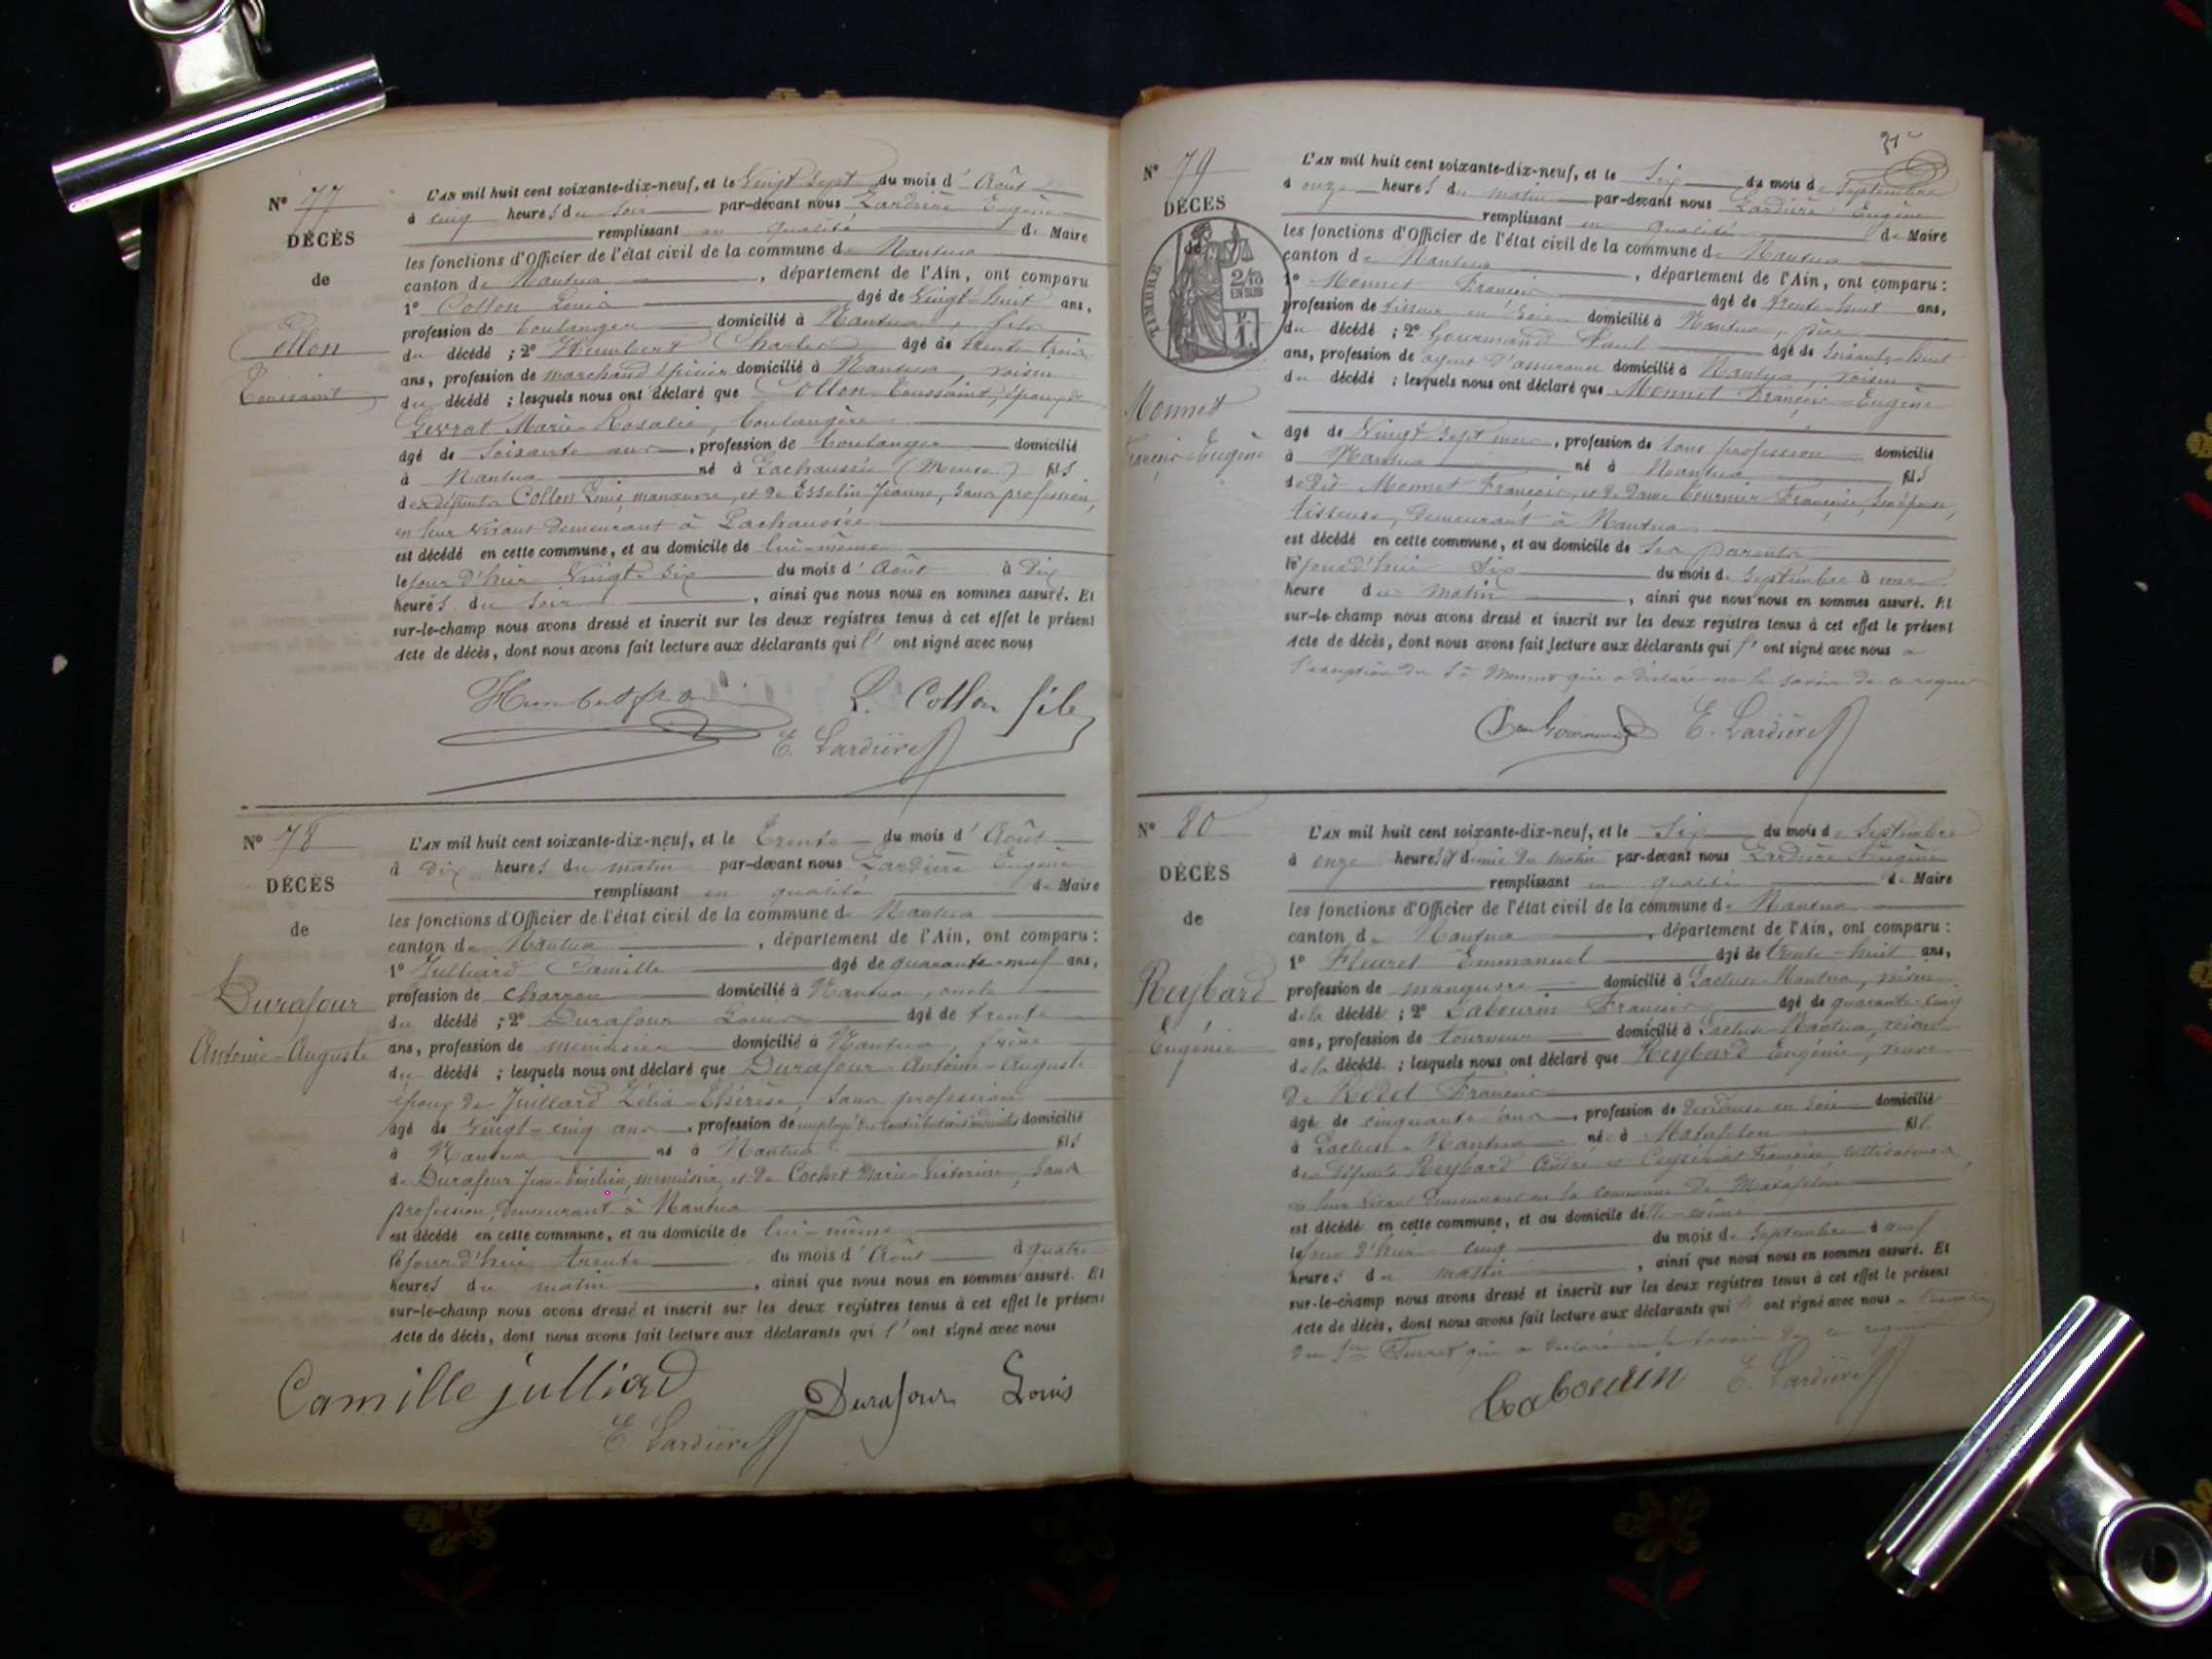 N° 77
DÉCÈS
de
Collon
Toussaint
L'AN mil huit cent soixante-dix-neuf, et le Vingt Sept du mois d' Août
à cinq heures du soir par-devant nous Lardière Eugène
remplissant en qualité de Maire
les fonctions d'Officier de l'état civil de la commune de Nantua
canton de Nantua, département de l'Ain, ont comparu
1° Collon Louis âgé de Vingt-huit ans,
profession de boulanger domicilié à Nantua, fils
du décédé ; 2° Humbert Charles âgé de trente trois
ans, profession de marchand épicier domicilié à Nantua, voisin
du décédé ; lesquels nous ont déclaré que Collon Toussaint, époux de
Gevrat Marie Rosalie, boulangère
âgé de Soixante ans, profession de boulanger domicilié
à Nantua né à Lachaussée (Meuse) fils
des défunts Collon Louis, manœuvre, et de Esselin Jeanne, sans profession,
en leur vivant demeurant à Lachaussée
est décédé en cette commune, et au domicile de lui-même
le jour d'hier Vingt-Six du mois d' Août à Dix
heures du soir, ainsi que nous nous en sommes assuré. Et
sur-le-champ nous avons dressé et inscrit sur les deux registres tenus à cet effet le présent
Acte de décès, dont nous avons fait lecture aux déclarants qui l' ont signé avec nous
L. Collon fils
E. Lardière
N° 78
DÉCÈS
de
Durafour
Antoine-Auguste
L'AN mil huit cent soixante-dix-neuf, et le Trente du mois d' Août
à Dix heures du matin par-devant nous Lardière Eugène
remplissant en qualité de Maire
les fonctions d'Officier de l'état civil de la commune de Nantua
canton de Nantua, département de l'Ain, ont comparu :
1° Julliard Camille âgé de quarante-neuf ans,
profession de charron domicilié à Nantua, oncle
du décédé ; 2° Durafour Louis âgé de trente
ans, profession de menuisier domicilié à Nantua, frère
du décédé ; lesquels nous ont déclaré que Durafour Antoine-Auguste
époux de Juillard Zélia-Thérèse, sans profession
âgé de Vingt-cinq ans, profession de employé des contributions indirectes domicilié
à Nantua né à Nantua fils
de Durafour Jean-Emilien, menuisier, et de Cochet Marie-Victorine, sans
profession, demeurant à Nantua
est décédé en cette commune, et au domicile de lui-même
le jour d'hui trente du mois d' Août à quatre
heures du matin, ainsi que nous nous en sommes assuré. Et
sur-le-champ nous avons dressé et inscrit sur les deux registres tenus à cet effet le présent
Acte de décès, dont nous avons fait lecture aux déclarants qui l' ont signé avec nous
Camille julliard Durafour Louis
E Lardière
N° 79
DÉCÈS
de
TIMBRE
2/10 EN SUS
Monnet
François-Eugène
L'AN mil huit cent soixante-dix-neuf, et le Six du mois de Septembre
à onze heures du matin par-devant nous Lardière Eugène
remplissant en qualité de Maire
les fonctions d'Officier de l'état civil de la commune de Nantua
canton de Nantua, département de l'Ain, ont comparu :
1° Monnet François âgé de trente-huit ans,
profession de tisseur en soie domicilié à Nantua, père
du décédé ; 2° Gourmand Paul âgé de soixante-huit
ans, profession de agent d'assurance domicilié à Nantua, voisin
du décédé ; lesquels nous ont déclaré que Monnet François-Eugène
âgé de Vingt Sept mois, profession de sans profession domicilié
à Nantua né à Nantua fils
de dit Monnet François, et de dame Tournier Françoise, son épouse,
tisseuse, demeurant à Nantua
est décédé en cette commune, et au domicile de ses parents
le jourd'hui Six du mois de Septembre à une
heure du matin, ainsi que nous nous en sommes assuré. Et
sur-le-champ nous avons dressé et inscrit sur les deux registres tenus à cet effet le présent
Acte de décès, dont nous avons fait lecture aux déclarants qui l' ont signé avec nous à
l'exception du Sr Monnet qui a déclaré ne le savoir de ce requis
E. Lardière
N° 80
DÉCÈS
de
Reybard
Eugénie
L'AN mil huit cent soixante-dix-neuf, et le Six du mois de Septembre
à onze heures et demie du matin par-devant nous Lardière Eugène
remplissant en qualité de Maire
les fonctions d'Officier de l'état civil de la commune de Nantua
canton de Nantua, département de l'Ain, ont comparu :
1° Fleuret Emmanuel âgé de trente-huit ans,
profession de manœuvre domicilié à Lacluse-Nantua, voisin
de la décédé ; 2° Cabourin François âgé de quarante-cinq
ans, profession de tourneur domicilié à Lacluse-Nantua, voisin
de la décédé ; lesquels nous ont déclaré que Reybard Eugénie, veuve
de Rodet François
âgé de cinquante ans, profession de dévideuse en soie domicilié
à Lacluse-Nantua née à Matafelon fil
des défunts Reybard André et Françoise, cultivateurs,
en leur vivant demeurant en la commune de Matafelon
est décédé en cette commune, et au domicile d'elle-même
le jour d'hier cinq du mois de Septembre à neuf
heures du matin, ainsi que nous nous en sommes assuré. Et
sur-le-champ nous avons dressé et inscrit sur les deux registres tenus à cet effet le présent
Acte de décès, dont nous avons fait lecture aux déclarants qui l' ont signé avec nous à l'exception
du Sr Fleuret qui a déclaré ne le savoir de ce requis
Cabourin E. Lardière